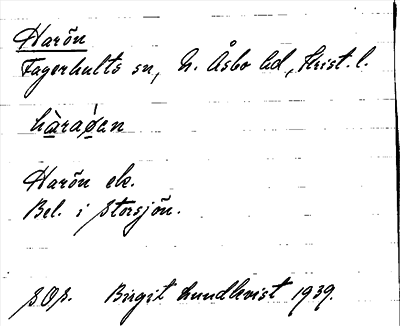 Harön
Fagerhults sn, N. Åsbo hd, Krist. l.
hàraǿen
Harön ek.
Bel. i Storsjön.
SOS. Birgit Lundkvist 1939.